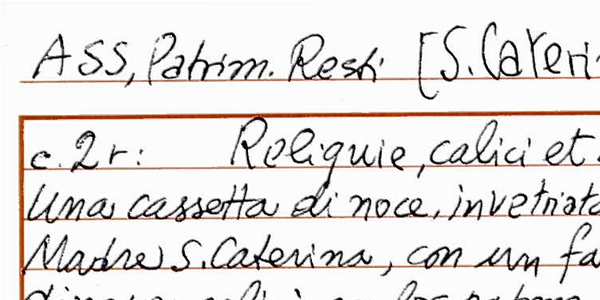 ASS, Patrim. Resti [S. Cateri
c. 2r: Reliquie, calici et
Una cassetta di noce, invetriata
Madre S. Caterina, con un fa